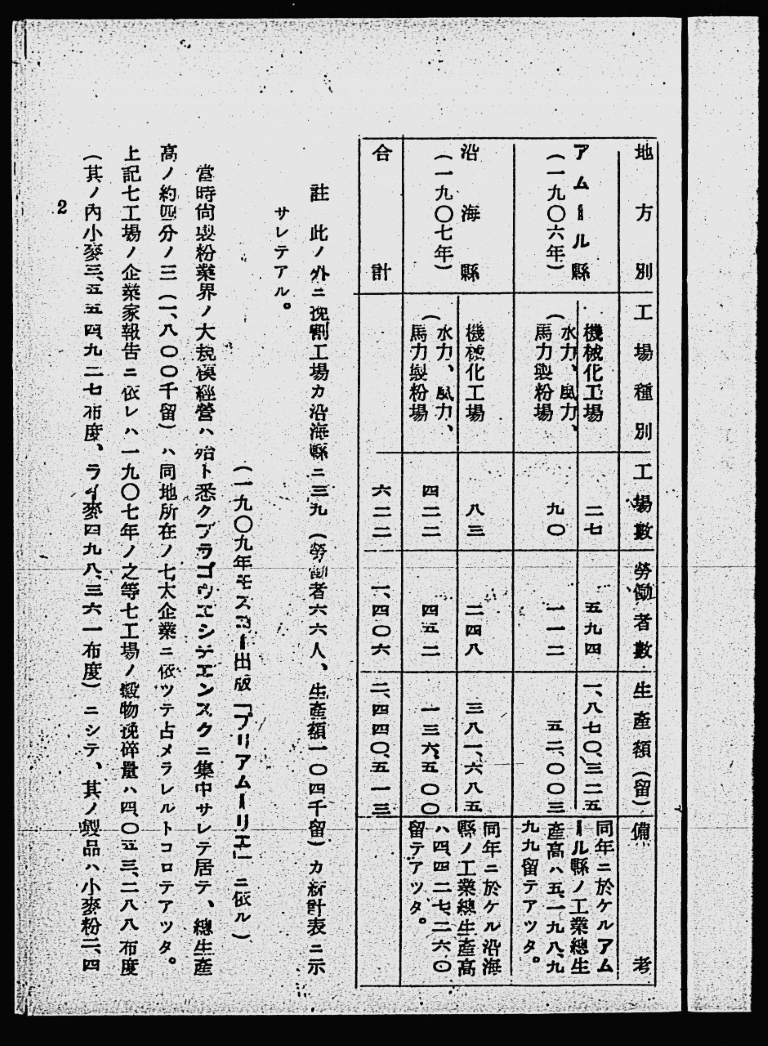 地方別 工場種別 工場數 勞働者數 生產額(留) 備考
アムール縣
(一九〇六年)
機械化工場 二七 五九四 一、八七〇、三二五
(水力、風力、
馬力製粉場 九〇 一一二 五二、〇〇三
同年ニ於ケルアム
ール縣ノ工業總生
產高ハ五一九八九
九九留テアツタ。
沿海縣
(一九〇七年)
機械化工場 八三 二四八 三八一、六八五
(水力、風力、
馬力製粉場 四二二 四五二 一三六、五〇〇
同年ニ於ケル沿海
縣ノ工業總生產高
ハ四四二七、二六〇
留テアツタ。
合計 六二二 一、四〇六 二、四四〇、五一三
註 此ノ外ニ挽割工場カ沿海縣ニ三九(勞働者六六人、生產額一〇四千留)カ統計表ニ示
サレテアル。
(一九〇九年モスコー出版「プリアムーリエ」ニ依ル)
當時尙製粉業界ノ大規模經營ハ殆ト悉クブラゴウエシチエンスクニ集中サレテ居テ、總生產
高ノ約四分ノ三(一、八〇〇千留)ハ同地所在ノ七大企業ニ依ツテ占メラレルトコロテアツタ。
上記七工場ノ企業家報告ニ依レハ一九〇七年ノ之等七工場ノ穀物挽碎量ハ四、〇五三、二八八布度
(其ノ內小麥三、五五四、九二七布度、ライ麥四九八、三六一布度)ニシテ、其ノ製品ハ小麥粉二、四
2